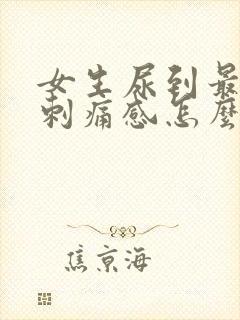 女生尿到最
刺痛感怎麼
焦京海